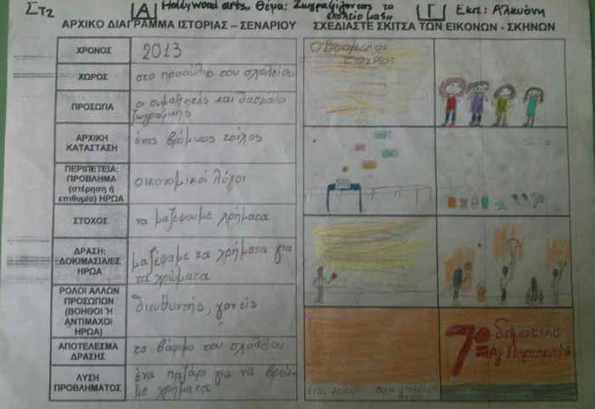 ΣΤ2
Α
Hollywood arts, Θέμα: Ζωγραφίζοντας το
σχολείο μας
Γ
Εκπ:
ΑΡΧΙΚΟ ΔΙΑΓΡΑΜΜΑ ΙΣΤΟΡΙΑΣ – ΣΕΝΑΡΙΟΥ
ΣΧΕΔΙΑΣΤΕ ΣΚΙΤΣΑ ΤΩΝ ΕΙΚΟΝΩΝ - ΣΚΗΝΩΝ
ΧΡΟΝΟΣ
2013
ΧΩΡΟΣ
στο προαύλιο του σχολείου
ΠΡΟΣΩΠΑ
οι συμαθητές και δασκάλα
ζωγραφικής
ΑΡΧΙΚΗ
ΚΑΤΑΣΤΑΣΗ
ένας βρώμικος τοίχος
ΠΕΡΙΠΕΤΕΙΑ:
ΠΡΟΒΛΗΜΑ
(στέρηση ή
επιθυμία) ΗΡΩΑ
οικονομικοί λόγοι
ΣΤΟΧΟΣ
να μαζέψουμε χρήματα
ΔΡΑΣΗ:
ΔΟΚΙΜΑΣΙΑ/ΕΣ
ΗΡΩΑ
μαζέψαμε τα χρήματα για
τα χρώματα
ΡΟΛΟΙ ΑΛΛΩΝ
ΠΡΟΣΩΠΩΝ
(ΒΟΗΘΟΙ Ή
ΑΝΤΙΜΑΧΟΙ
ΗΡΩΑ)
διευθυντής, γονείς
ΑΠΟΤΕΛΕΣΜΑ
ΔΡΑΣΗΣ
το βάψιμο του σχολείου
ΛΥΣΗ
ΠΡΟΒΛΗΜΑΤΟΣ
ένα παζάρι για να βρούμε
χρήματα
7ο δημοτικό
Αγ. Παρασκευής